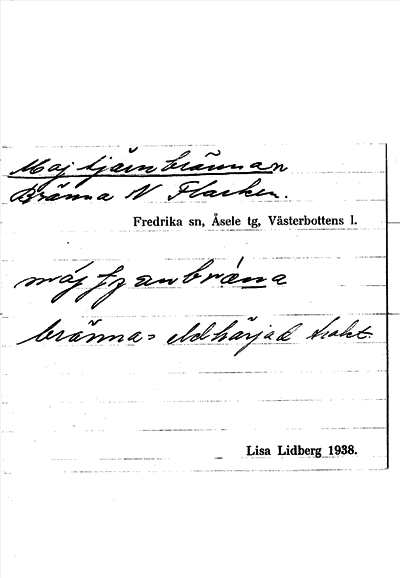 Majtjärnbrännan
Bränna N Flarken.
Fredrika sn, Åsele tg, Västerbottens l.
bränna = eldhärjad trakt.
Lisa Lidberg 1938.